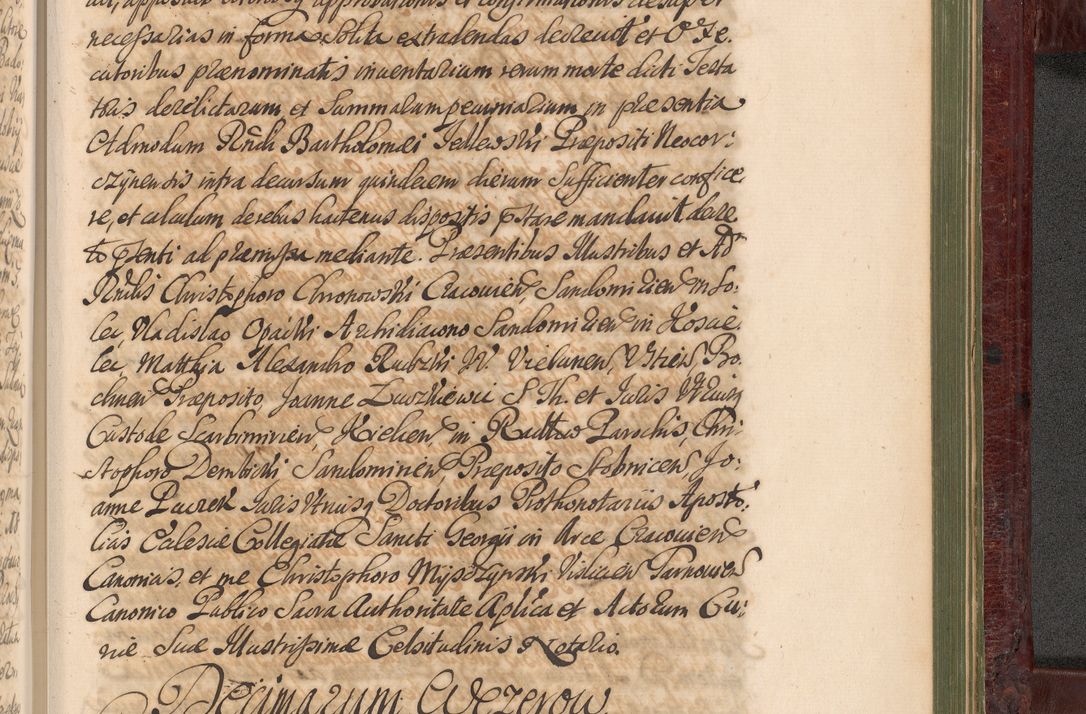 necessarias in forma solita extradendas decrevit et Exe:
cutoribus praenominatis inventarium rerum morte dicti Testa
toris derelictarum et summarum pecuniarum in praesentia
Admodum Rndi Bartholomaei Jedlewski Praepositi Neocor:
czynensis infra decursum quindecem dierum sufficienter confice:
re, et calculum de rebus hactenus dispositis pstare mandavit decre
to pnti ad praemissa mediante. Praesentibus Illustribus et Adm
Rndis Christophoro Chronowski Cracovien, Sandomirien in So:
lec, Vladislao Opacki Archidiacono Sandomirien in Koscie:
lec, Matthia Alexandro Rubski W. Vielunen, Bo:
chnen Praeposito, Joanne S. Th. et Juris Utriusq
Custode Scarbimirien, Kielcen, in Parochis, Chri:
stophoro Dembicki, Sandomirien, Praeposito Stobnicen, Jo:
anne Puczek Juris Utriusq Doctoribus Prothonotariis Aposto:
licis Eclesiae Collegiatae Sancti Georgii in Arce Cracovien
Canonicis, et me Christophoro Myszczynski Vislicien Tarnovien
Canonico Publico Sacra Authoritate Aplica et Actorum Cu:
riae Suae Illustrissimae Celsitudinis Notario.
Decimarum